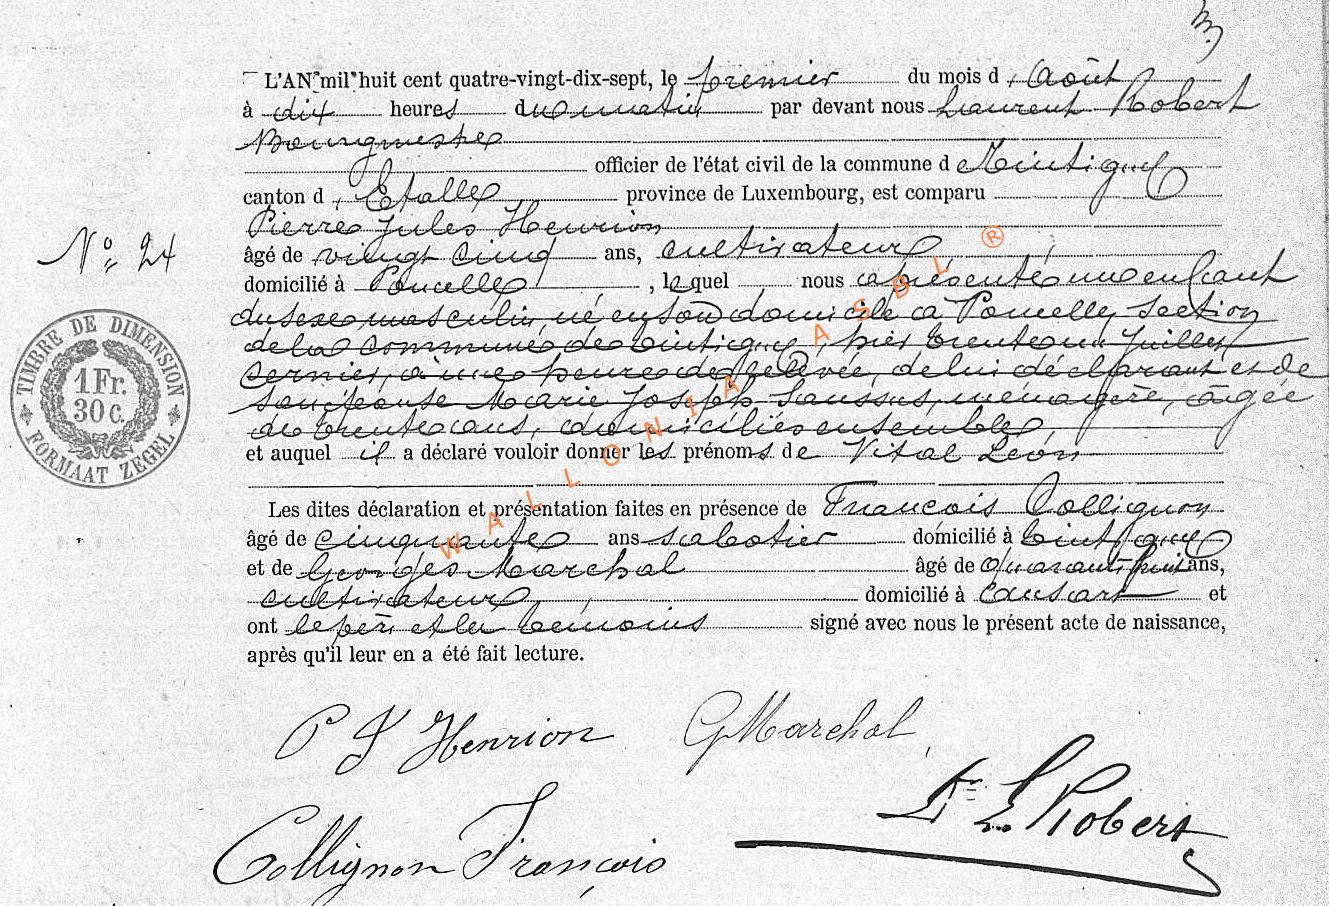 L'AN mil huit cent quatre-vingt-dix-sept, le premier du mois d'Août
à dix heures du matin par devant nous Laurent Robert
Bourgmestre
officier de l'état civil de la commune de Tintigny
canton d'Etalle province de Luxembourg, est comparu
Pierre Jules Henrion
N° 24
âgé de vingt cinq ans, cultivateur
domicilié à Poncelle, lequel nous a présenté un enfant
du sexe masculin, né en son domicile à Poncelle, section
de la commune de Tintigny, hier trente un Juillet
dernier, à une heure de relevée, de lui déclarant et de
son épouse Marie Joseph, ménagère, âgée
de trente ans, domiciliés ensemble,
et auquel il a déclaré vouloir donner les prénoms de Vital Léon
Les dites déclaration et présentation faites en présence de François Collignon
âgé de cinquante ans sabotier domicilié à Tintigny
et de Georges Marchal âgé de quarante huit ans,
cultivateur, domicilié à Ansart et
ont le père et les témoins signé avec nous le présent acte de naissance,
après qu'il leur en a été fait lecture.
TIMBRE DE DIMENSION
1 Fr.
30 C.
FORMAAT ZEGEL
WALLONIA ASBL ®
P J Henrion G Marchal
Dr L Robert
Collignon François